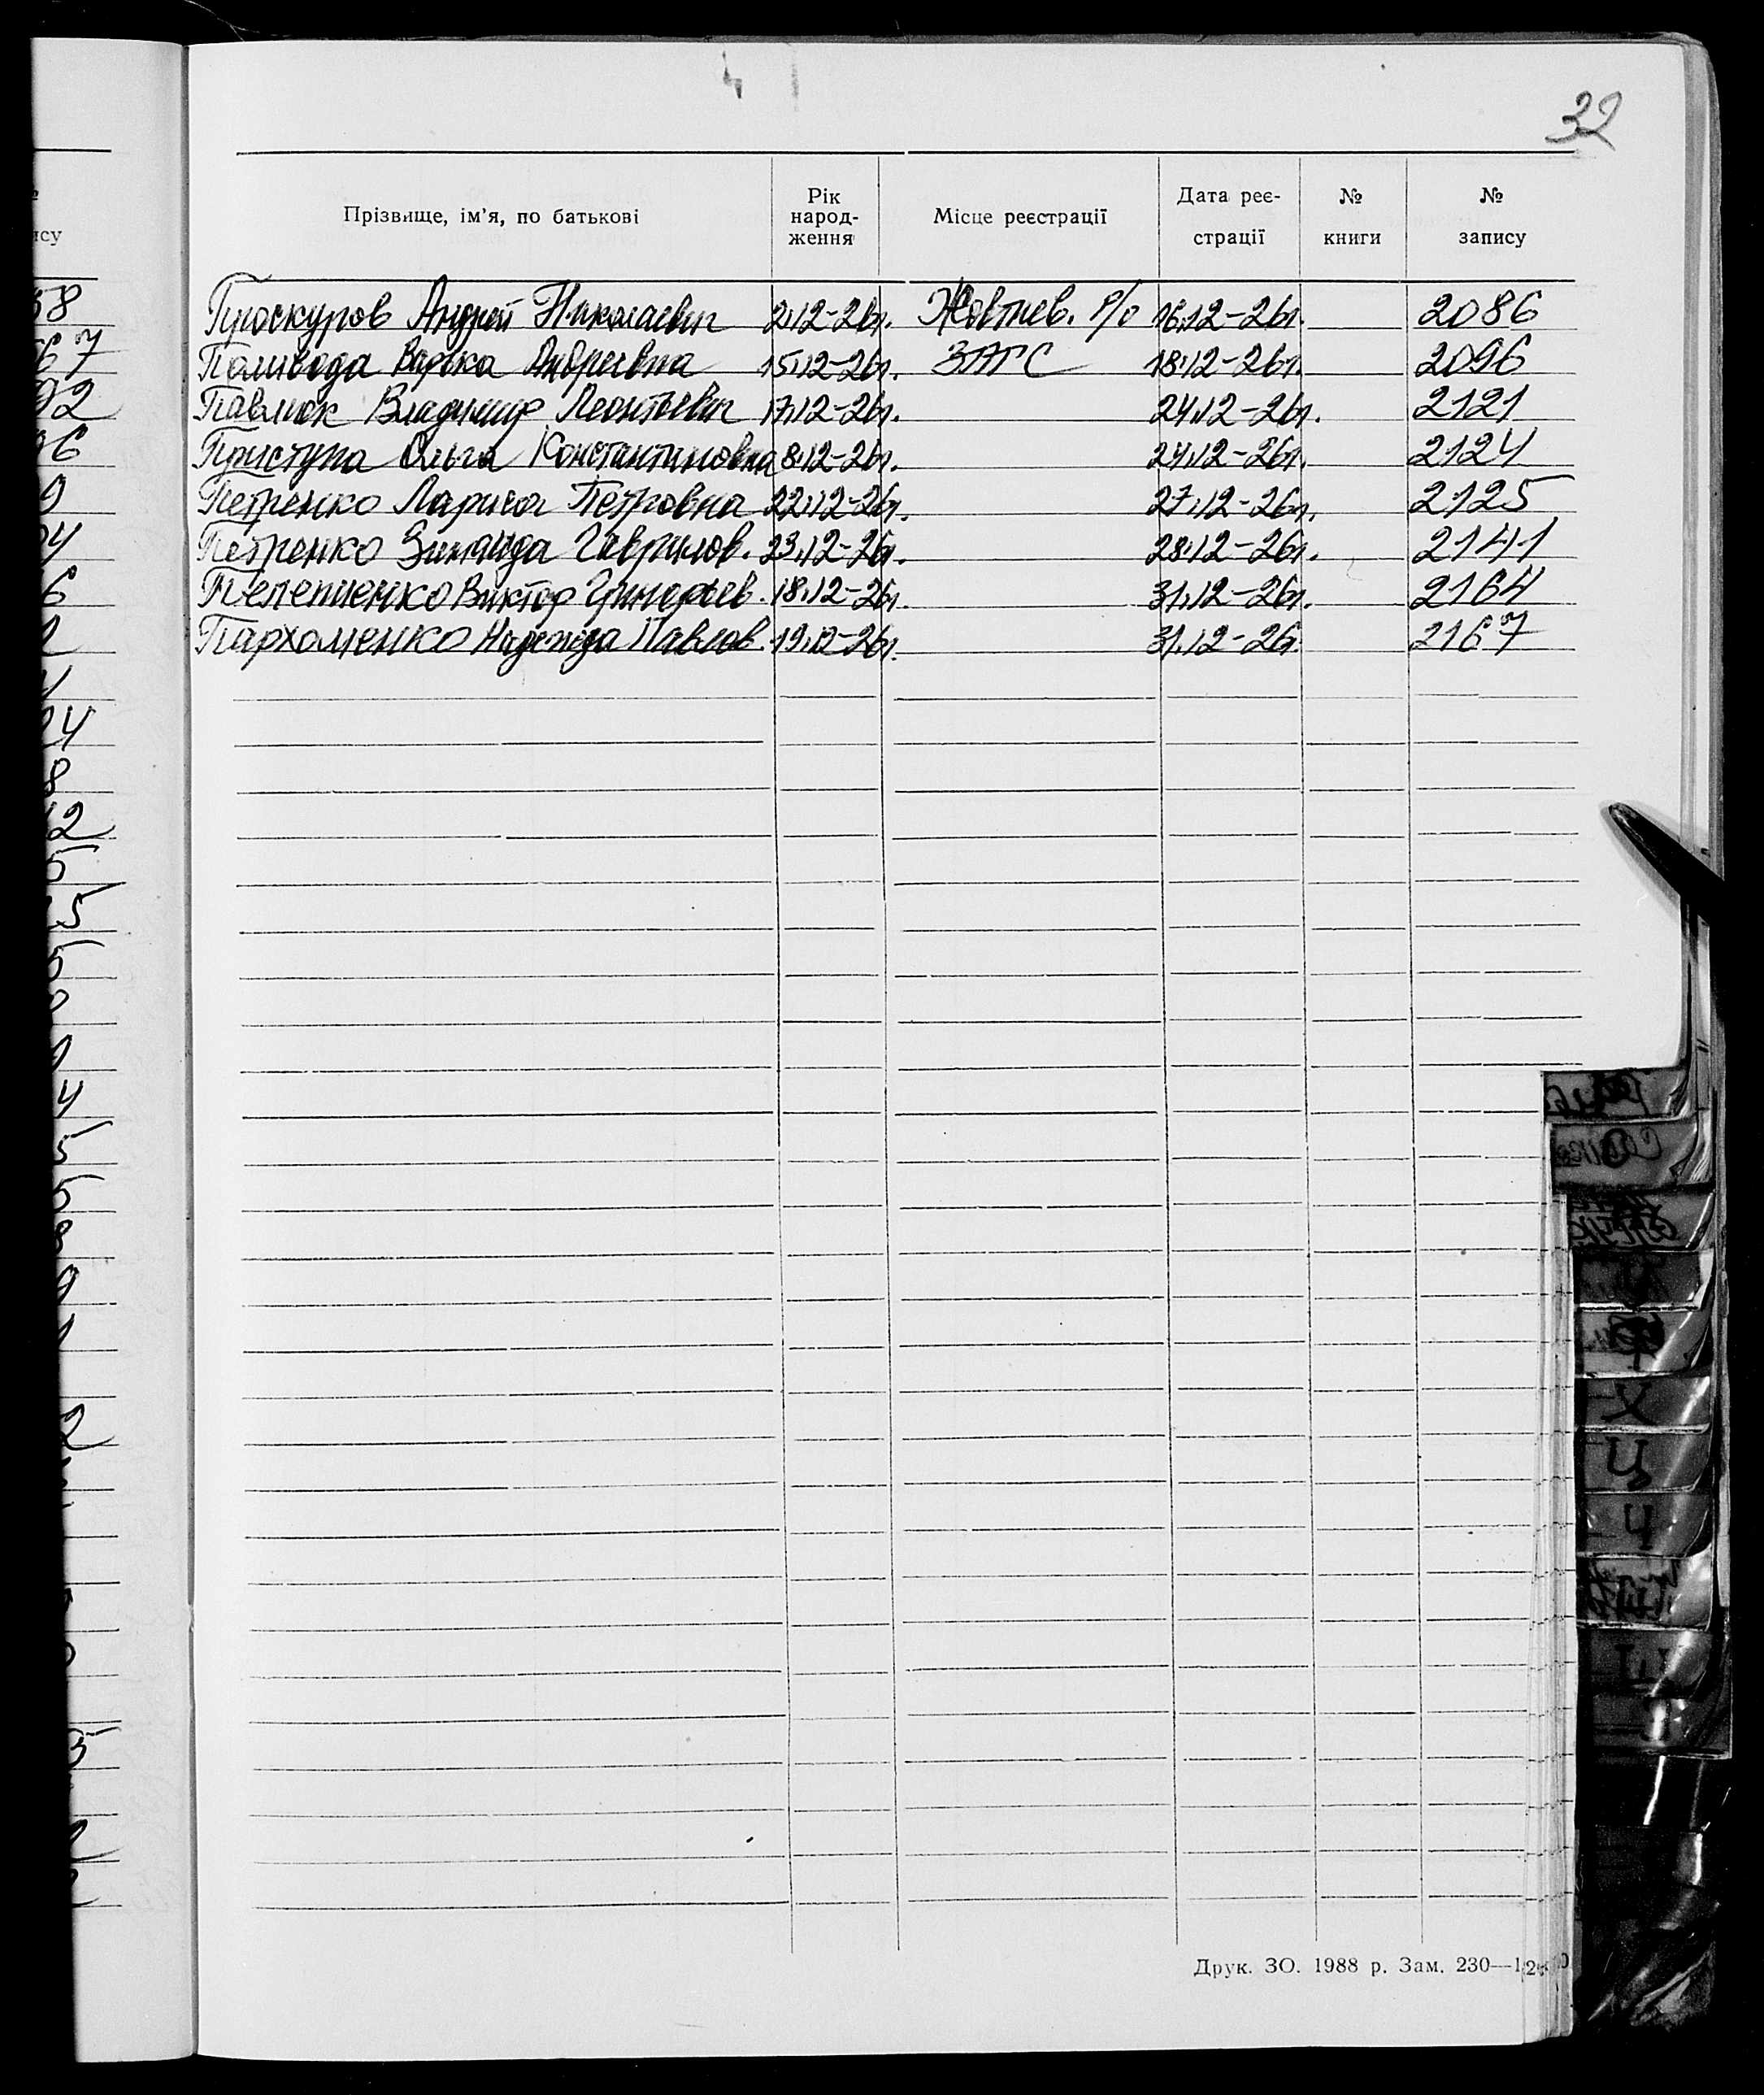 32
Прізвище, ім'я, по батькові Рік народ-ження Місце реєстрації Дата реє-страції № книги № запису
Проскуров Андрей Николаевич 2.12-26г. Жовтнев. р/о 16.12-26г. 2086
Поливода Андреевна 15.12-26г. ЗАГС 18.12-26г. 2096
Павлюк Владимир Леонтьевич 17.12-26г. 24.12-26г. 2121
Приступа Ольга Константиновна 8.12-26г. 24.12-26г. 2124
Петренко Лариса Петровна 22.12-26г. 27.12-26г. 2125
Петренко Зинаида Гаврилов. 23.12-26г. 28.12-26г. 2141
Виктор 18.12-26г. 31.12-26г. 2164
Пархоменко Надежда Павлов. 19.12-26г. 31.12-26г. 2167
Друк. ЗО. 1988 р. Зам. 230—
Х
Ц
Ч